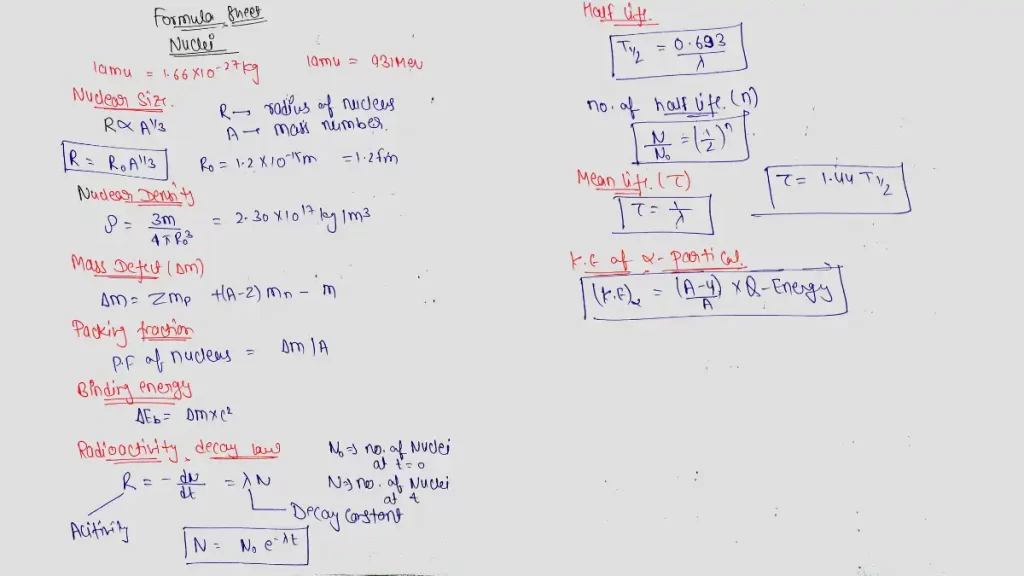 Formula Sheet
Nuclei
1amu = 1.66×10⁻²⁷kg 1amu = 931Mev
Nuclear Size.
R∝ A^1/3
R → radius of nucleus
A → Mass number.
R = R₀A^1/3 R₀ = 1.2 × 10⁻¹⁵m = 1.2fm
Nuclear Density
ρ = 3m / 4πR₀³ = 2.30×10¹⁷ kg/m³
Mass Defect (Δm)
Δm = Zmp +(A-Z) mn - m
Packing fraction
P.F of nucleus = Δm/A
Binding energy
ΔEb = Δm×c²
Radioactivity decay law
N₀ ⇒ no. of Nuclei
at t=0
R = - dN/dt = λN
N ⇒ no. of Nuclei
at t
Acitivity
Decay Constant
N = N₀ e^-λt
Half Life.
T½ = 0.693 / λ
no. of half life. (n)
N/N₀ = (1/2)ⁿ
Mean life. (τ)
τ = 1/λ
τ = 1.44 T½
K.E of α- partical.
(K.E)α = (A-4)/A × Q-Energy